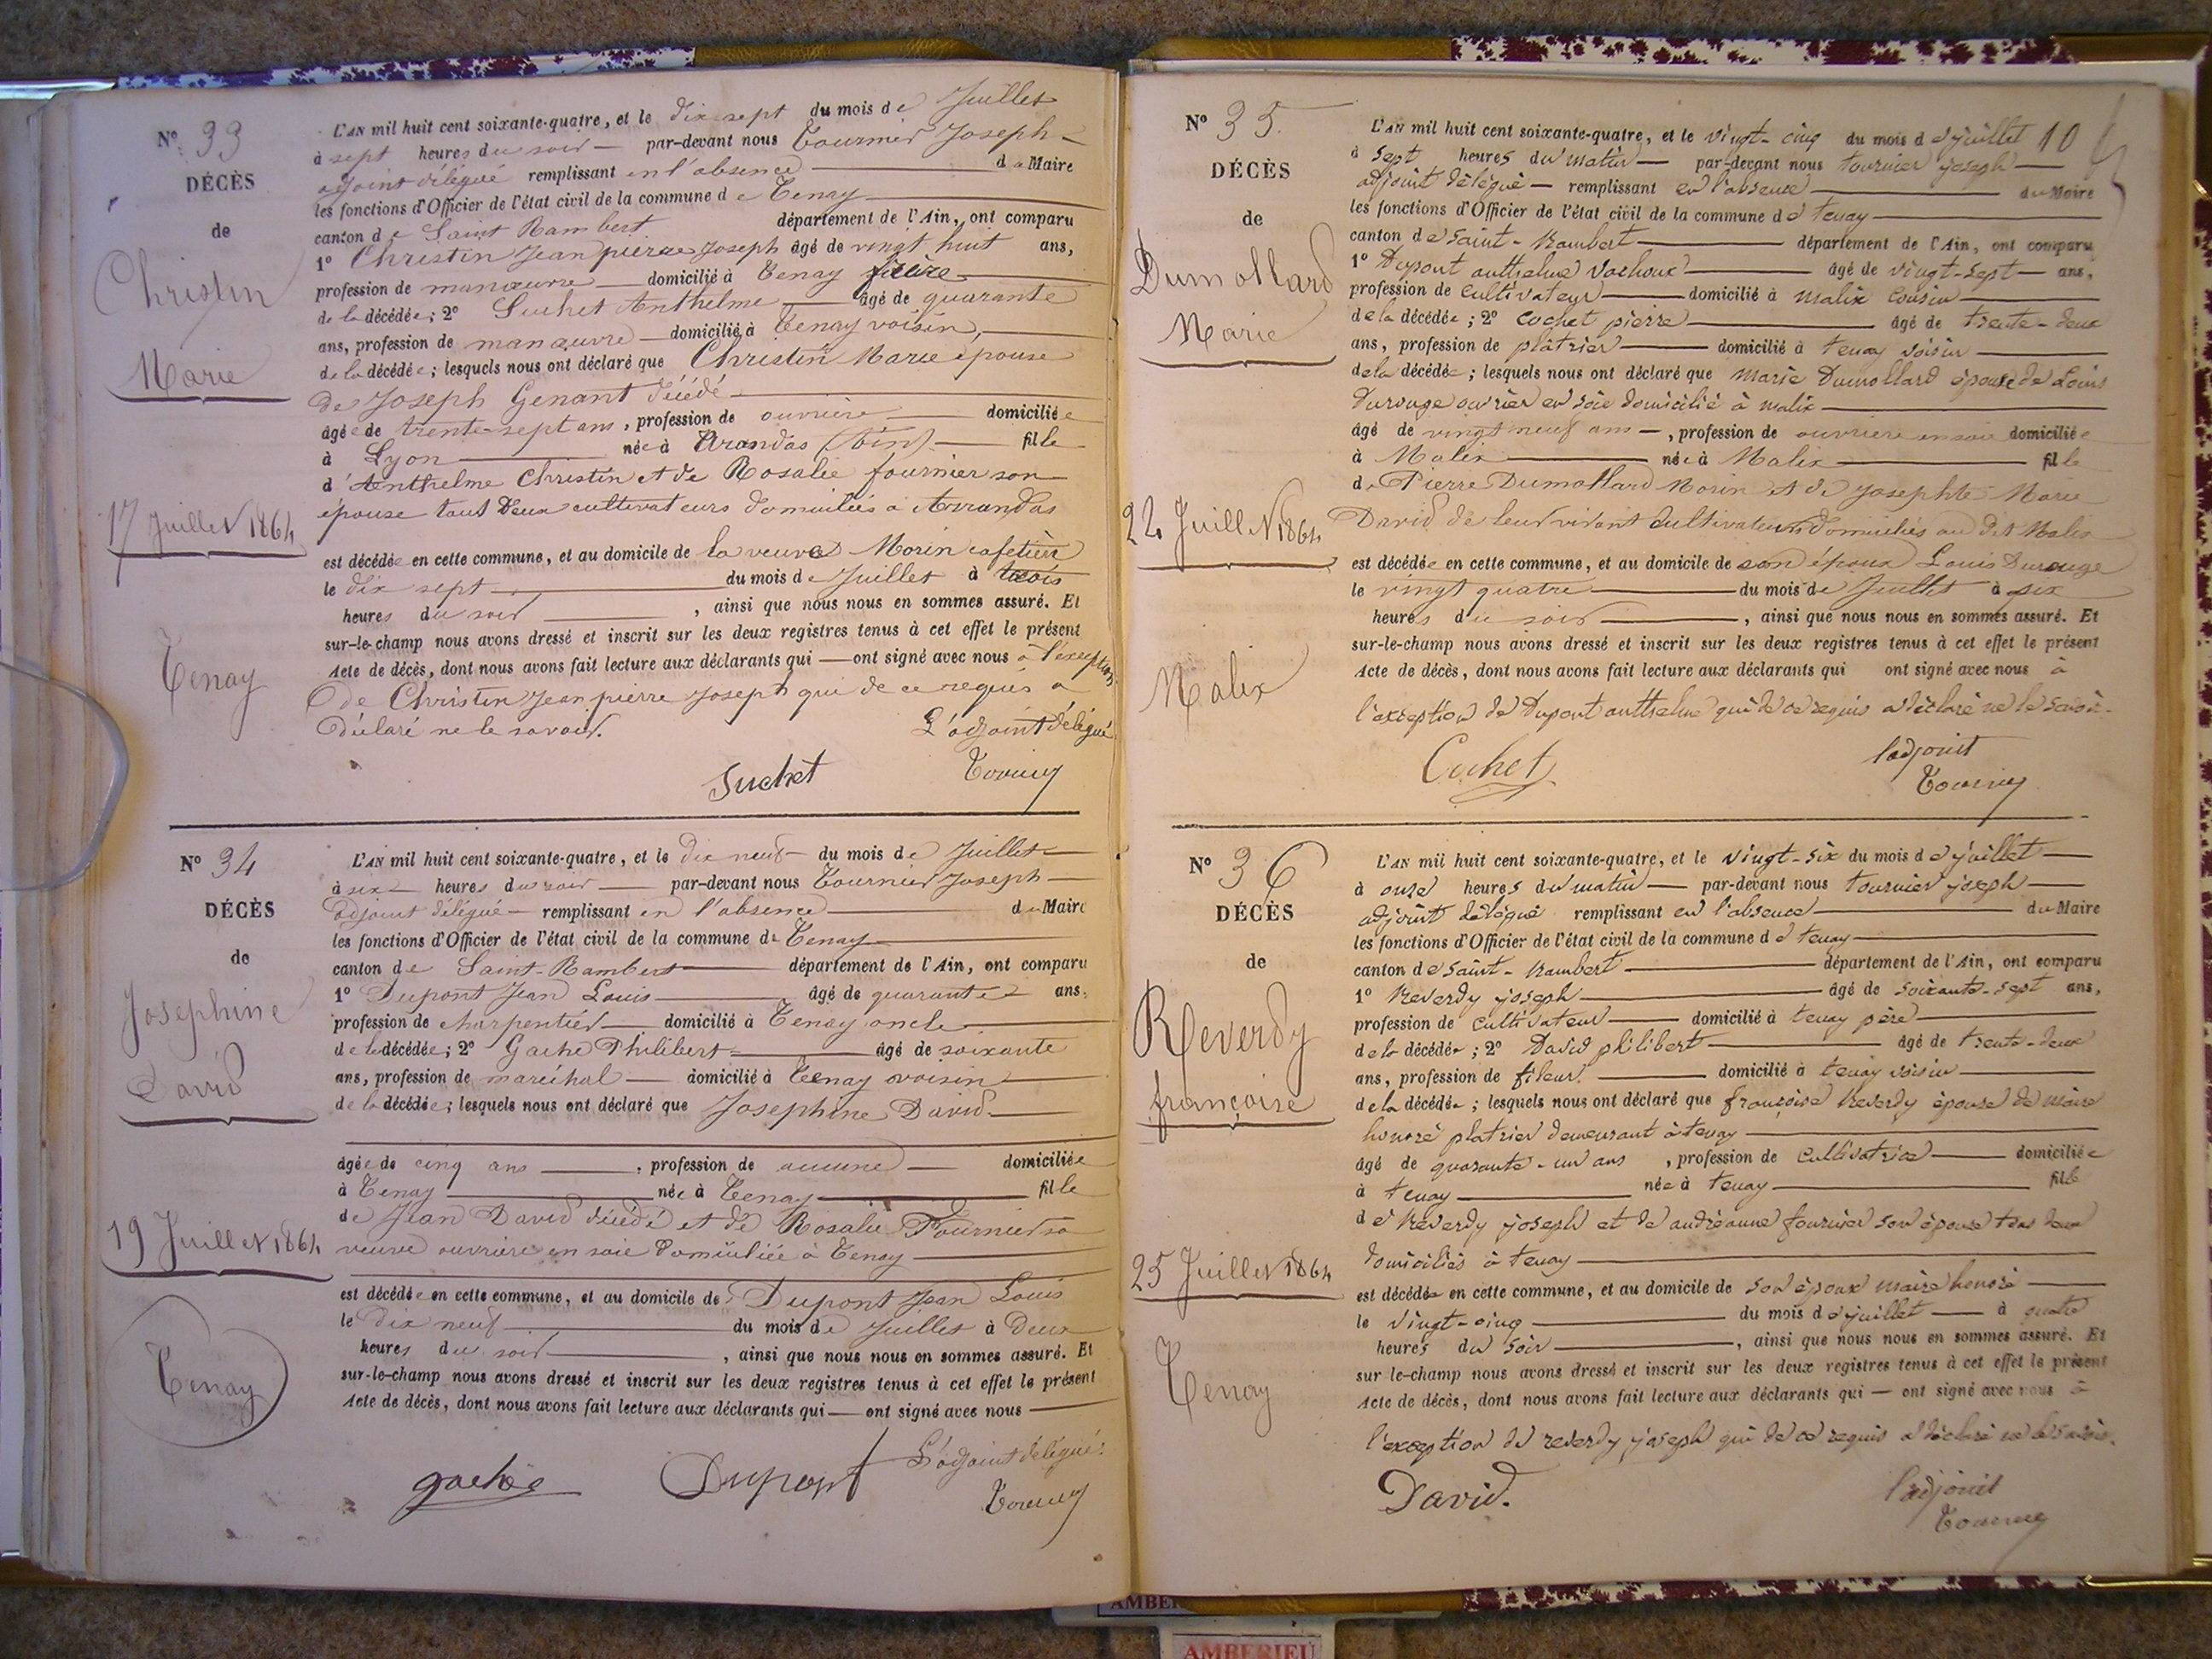 N° 33
DÉCÈS
de
Christin
Marie
17 Juillet 1864
Tenay
L'AN mil huit cent soixante-quatre, et le dix-sept du mois de Juillet
à sept heures du soir par-devant nous Tournier Joseph
adjoint délégué remplissant en l'absence du Maire
les fonctions d'Officier de l'état civil de la commune de Tenay
canton de Saint Rambert département de l'Ain, ont comparu
1° Christin Jean pierre Joseph âgé de vingt huit ans,
profession de manœuvre domicilié à Tenay frère
de la décédée; 2° Suchet Anthelme âgé de quarante
ans, profession de manœuvre domicilié à Tenay voisin,
de la décédée; lesquels nous ont déclaré que Christin Marie épouse
de Joseph Genant décédé
âgée de trente-sept ans, profession de ouvrière domiciliée
à Lyon née à Arandas (Ain) fille
d'Anthelme Christin et de Rosalie fournier son
épouse tout deux cultivateurs domiciliés a Arrandas
est décédée en cette commune, et au domicile de la veuve Morin cafetière
le dix sept du mois de Juillet à trois
heures du soir, ainsi que nous nous en sommes assuré. Et
sur-le-champ nous avons dressé et inscrit sur les deux registres tenus à cet effet le présent
Acte de décès, dont nous avons fait lecture aux déclarants qui ont signé avec nous à l'exception
de Christin Jean pierre Joseph qui de ce requis a
déclaré ne le savoir.
L'adjoint délégué
Suchet
N° 34
DÉCÈS
de
Josephine
David
19 Juillet 1864
Tenay
L'AN mil huit cent soixante-quatre, et le dix neuf du mois de Juillet
à six heures du soir par-devant nous Tournier Joseph
adjoint délégué remplissant en l'absence du Maire
les fonctions d'Officier de l'état civil de la commune de Tenay
canton de Saint-Rambert département de l'Ain, ont comparu
1° Dupont Jean Louis âgé de quarante ans,
profession de charpentier domicilié à Tenay oncle
de la décédée; 2° Gache Philibert âgé de soixante
ans, profession de maréchal domicilié à Tenay voisin
de la décédée; lesquels nous ont déclaré que Josephine David
âgée de cinq ans, profession de aucune domiciliée
à Tenay née à Tenay fille
de Jean David décédé et de Rosalie Fournier sa
veuve ouvrière en soie domiciliée à Tenay
est décédée en cette commune, et au domicile de Dupont Jean Louis
le dix neuf du mois de Juillet à deux
heures du soir, ainsi que nous nous en sommes assuré. Et
sur-le-champ nous avons dressé et inscrit sur les deux registres tenus à cet effet le présent
Acte de décès, dont nous avons fait lecture aux déclarants qui ont signé avec nous
L'adjoint délégué
gache Dupont
N° 35
DÉCÈS
de
Dumollard
Marie
Malix
L'AN mil huit cent soixante-quatre, et le vingt-cinq du mois de juillet 10
à sept heures du matin par-devant nous tournier joseph
adjoint délégué remplissant en l'absence du Maire
les fonctions d'Officier de l'état civil de la commune de tenay
canton de Saint-Rambert département de l'Ain, ont comparu
1° Dupont anthelme âgé de vingt-sept ans,
profession de cultivateur domicilié à malix cousin
de la décédée; 2° cochet pierre âgé de trente-deux
ans, profession de plâtrier domicilié à tenay voisin
de la décédée; lesquels nous ont déclaré que marie Dumollard épouse de Louis
Durouge ouvrier en soie domicilié à malix
âgé de vingt neuf ans, profession de ouvrière en soie domiciliée
à Malix née à Malix fille
de Pierre Dumollard Morin et de Josephte Marie
David de leur vivant cultivateurs domiciliés au dit Malix
est décédée en cette commune, et au domicile de son époux Louis Durouge
le vingt quatre du mois de Juillet à six
heures du soir, ainsi que nous nous en sommes assuré. Et
sur-le-champ nous avons dressé et inscrit sur les deux registres tenus à cet effet le présent
Acte de décès, dont nous avons fait lecture aux déclarants qui ont signé avec nous à
l'exception de Dupont anthelme qui de ce requis a déclaré ne le savoir.
l'adjoint
Cochet
N° 36
DÉCÈS
de
Reverdy
françoise
25 Juillet 1864
Tenay
L'AN mil huit cent soixante-quatre, et le vingt-six du mois de juillet
à onze heures du matin par-devant nous tournier joseph
adjoint délégué remplissant en l'absence du Maire
les fonctions d'Officier de l'état civil de la commune de tenay
canton de Saint-Rambert département de l'Ain, ont comparu
1° Reverdy joseph âgé de soixante-sept ans,
profession de cultivateur domicilié à tenay père
de la décédée; 2° David philibert âgé de trente-deux
ans, profession de fileur domicilié à tenay voisin
de la décédée; lesquels nous ont déclaré que françoise Reverdy épouse de maire
honoré platrier demeurant à tenay
âgé de quarante-un ans, profession de cultivatrice domiciliée
à tenay née à tenay fille
de Reverdy joseph et de andréanne fournier son épouse tous deux
domiciliés à tenay
est décédée en cette commune, et au domicile de son époux maire honoré
le vingt-cinq du mois de juillet à quatre
heures du soir, ainsi que nous nous en sommes assuré. Et
sur-le-champ nous avons dressé et inscrit sur les deux registres tenus à cet effet le présent
Acte de décès, dont nous avons fait lecture aux déclarants qui ont signé avec nous à
l'exception de reverdy joseph qui de ce requis a déclaré ne le savoir.
David. l'adjoint
AMBERIEU